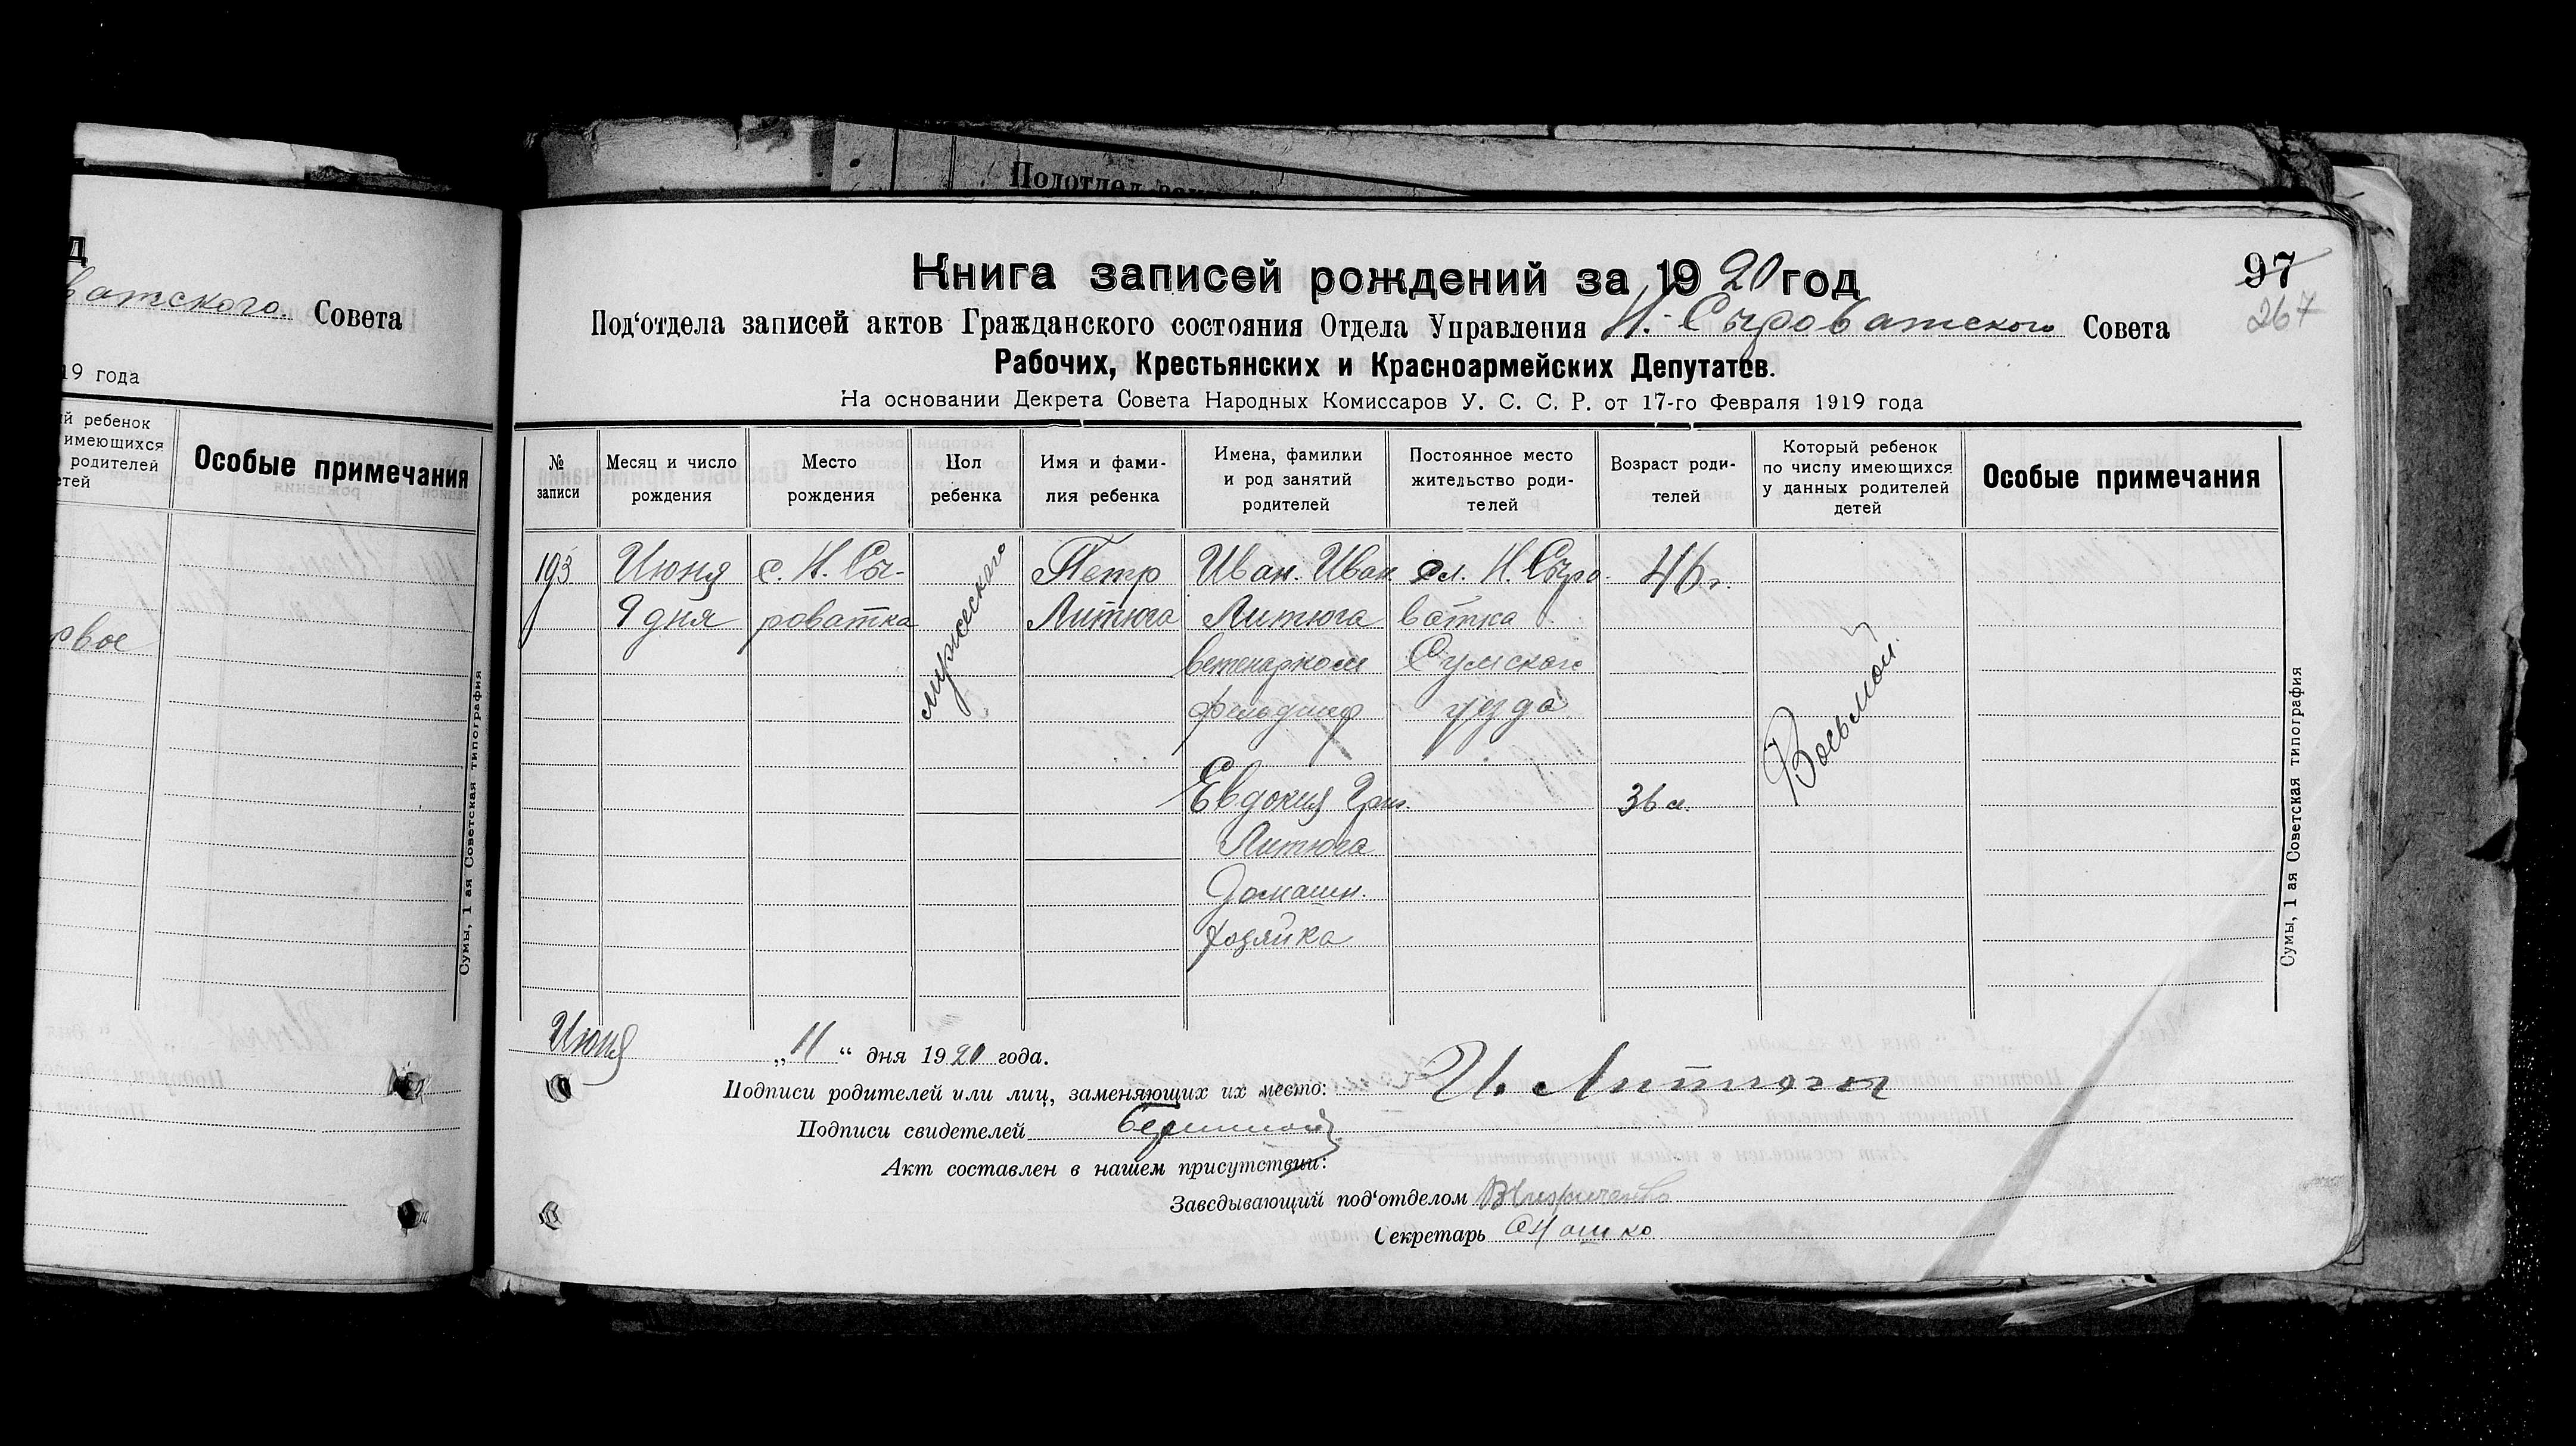 Подотдел
д
ватского. Совета
19 года
ий ребенок
имеющихся
родителей
етей
Особые примечания
рвое
Сумы, 1 ая Советская типография
Книга записей рождений за 1920 год
97
267
Под'отдела записей актов Гражданского состояния Отдела Управления Н.-Сыроватского Совета
Рабочих, Крестьянских и Красноармейских Депутатов.
На основании Декрета Совета Народных Комиссаров У. С. С. Р. от 17-го Февраля 1919 года
№ записи
Месяц и число рождения
Место рождения
Пол ребенка
Имя и фами-
лия ребенка
Имена, фамилии
и род занятий
родителей
Постоянное место
жительство роди-
телей
Возраст роди-
телей
Который ребенок
по числу имеющихся
у данных родителей
детей
Особые примечания
193
Июня
9 дня
с. Н. Сы-
роватка
мужеского
Петр
Литюга
Иван. Иван.
Литюга
фельдшер
Евдокия Григ.
Литюга
Домашн.
хозяйка
сл. Н. Сыро-
ватка
Сумского
уезда
46 г.
36 л.
Восьмой
Сумы, 1 ая Советская типография
Июня „11“ дня 1920 года.
Подписи родителей или лиц, заменяющих их место: И. Литюга
Подписи свидетелей
Акт составлен в нашем присутствии:
Заведывающий под'отделом
Секретарь